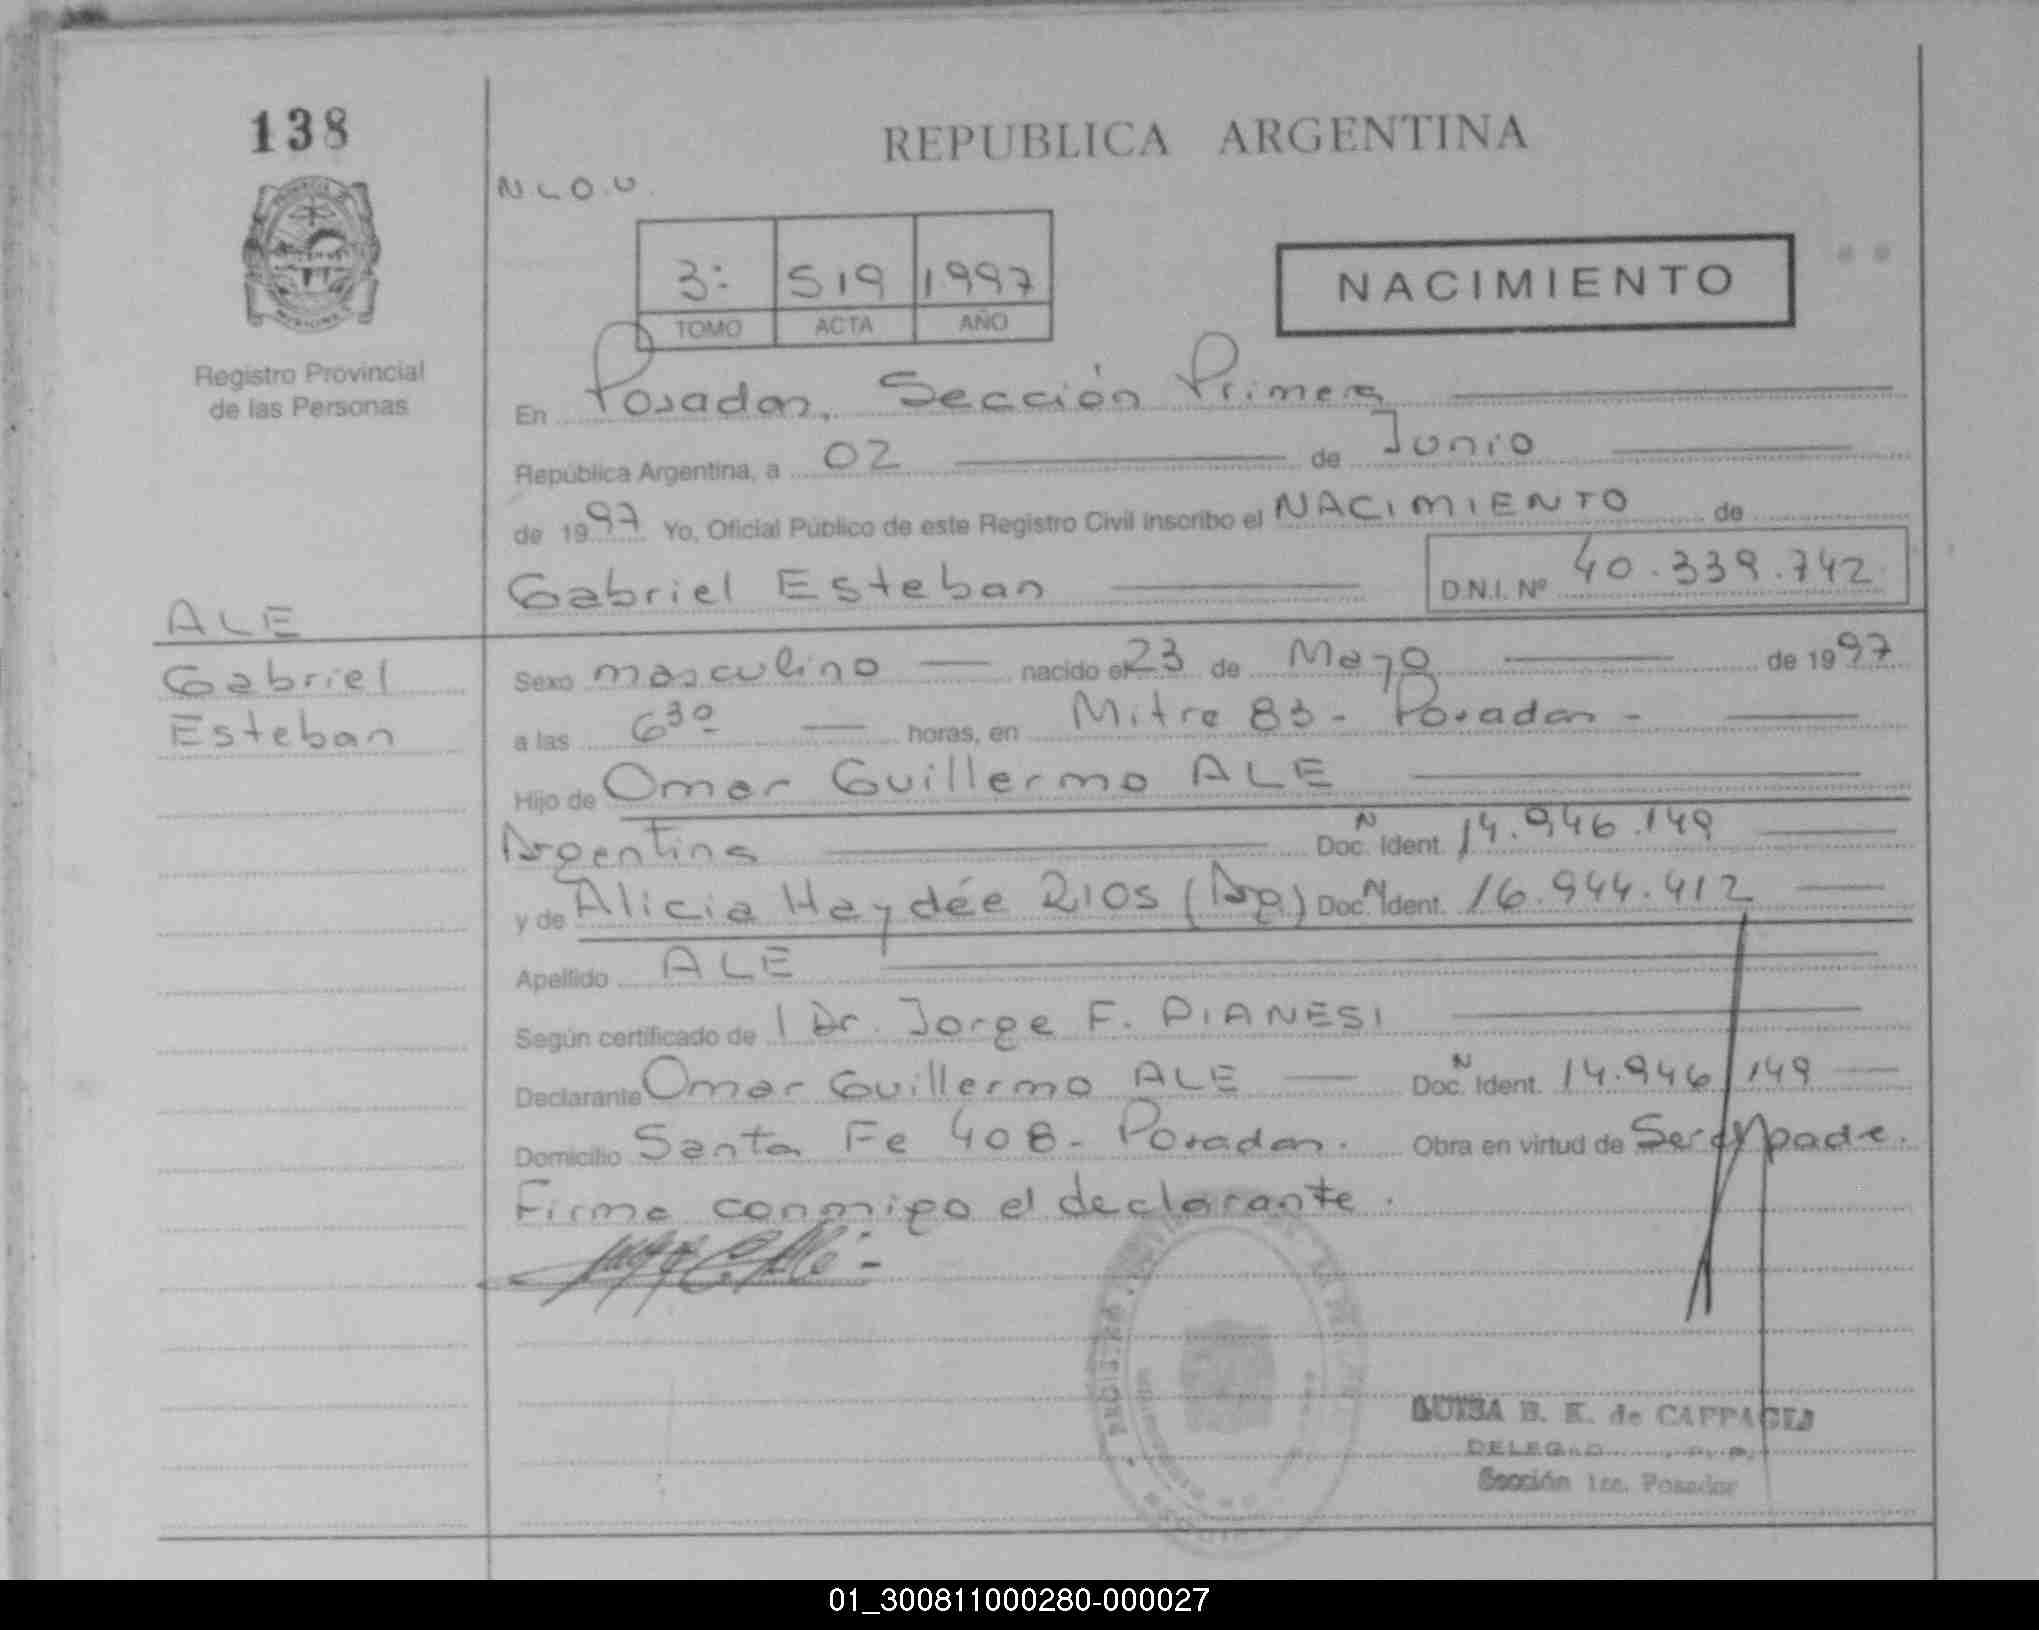 138
REPUBLICA ARGENTINA
N L O. U.
3: 519 1997
TOMO ACTA AÑO
NACIMIENTO
Registro Provincial
de las Personas
En Posadas, Sección Primera
República Argentina, a 02 de Junio
de 1997 Yo, Oficial Público de este Registro Civil inscribo el NACIMIENTO de
Gabriel Esteban D.N.I. Nº 40.339.742
ALE
Gabriel
Esteban
Sexo masculino nacido el 23 de Mayo de 1997
a las 6 30 horas, en Mitre 83 - Posadas -
Hijo de Omar Guillermo ALE
Argentina Doc. N Ident. 14.946.149
y de Alicia Haydée RIOS (Arg.) Doc. N Ident. 16.944.412
Apellido ALE
Según certificado de l Dr. Jorge F. PIANESI
Declarante Omar Guillermo ALE Doc. N Ident. 14.946.149
Domicilio Santa Fe 408 - Posadas. Obra en virtud de Ser el padre.
Firma conmigo el declarante.
REGISTRO
LUISA B. K. de
Sección 1ra. Posadas
01_300811000280-000027